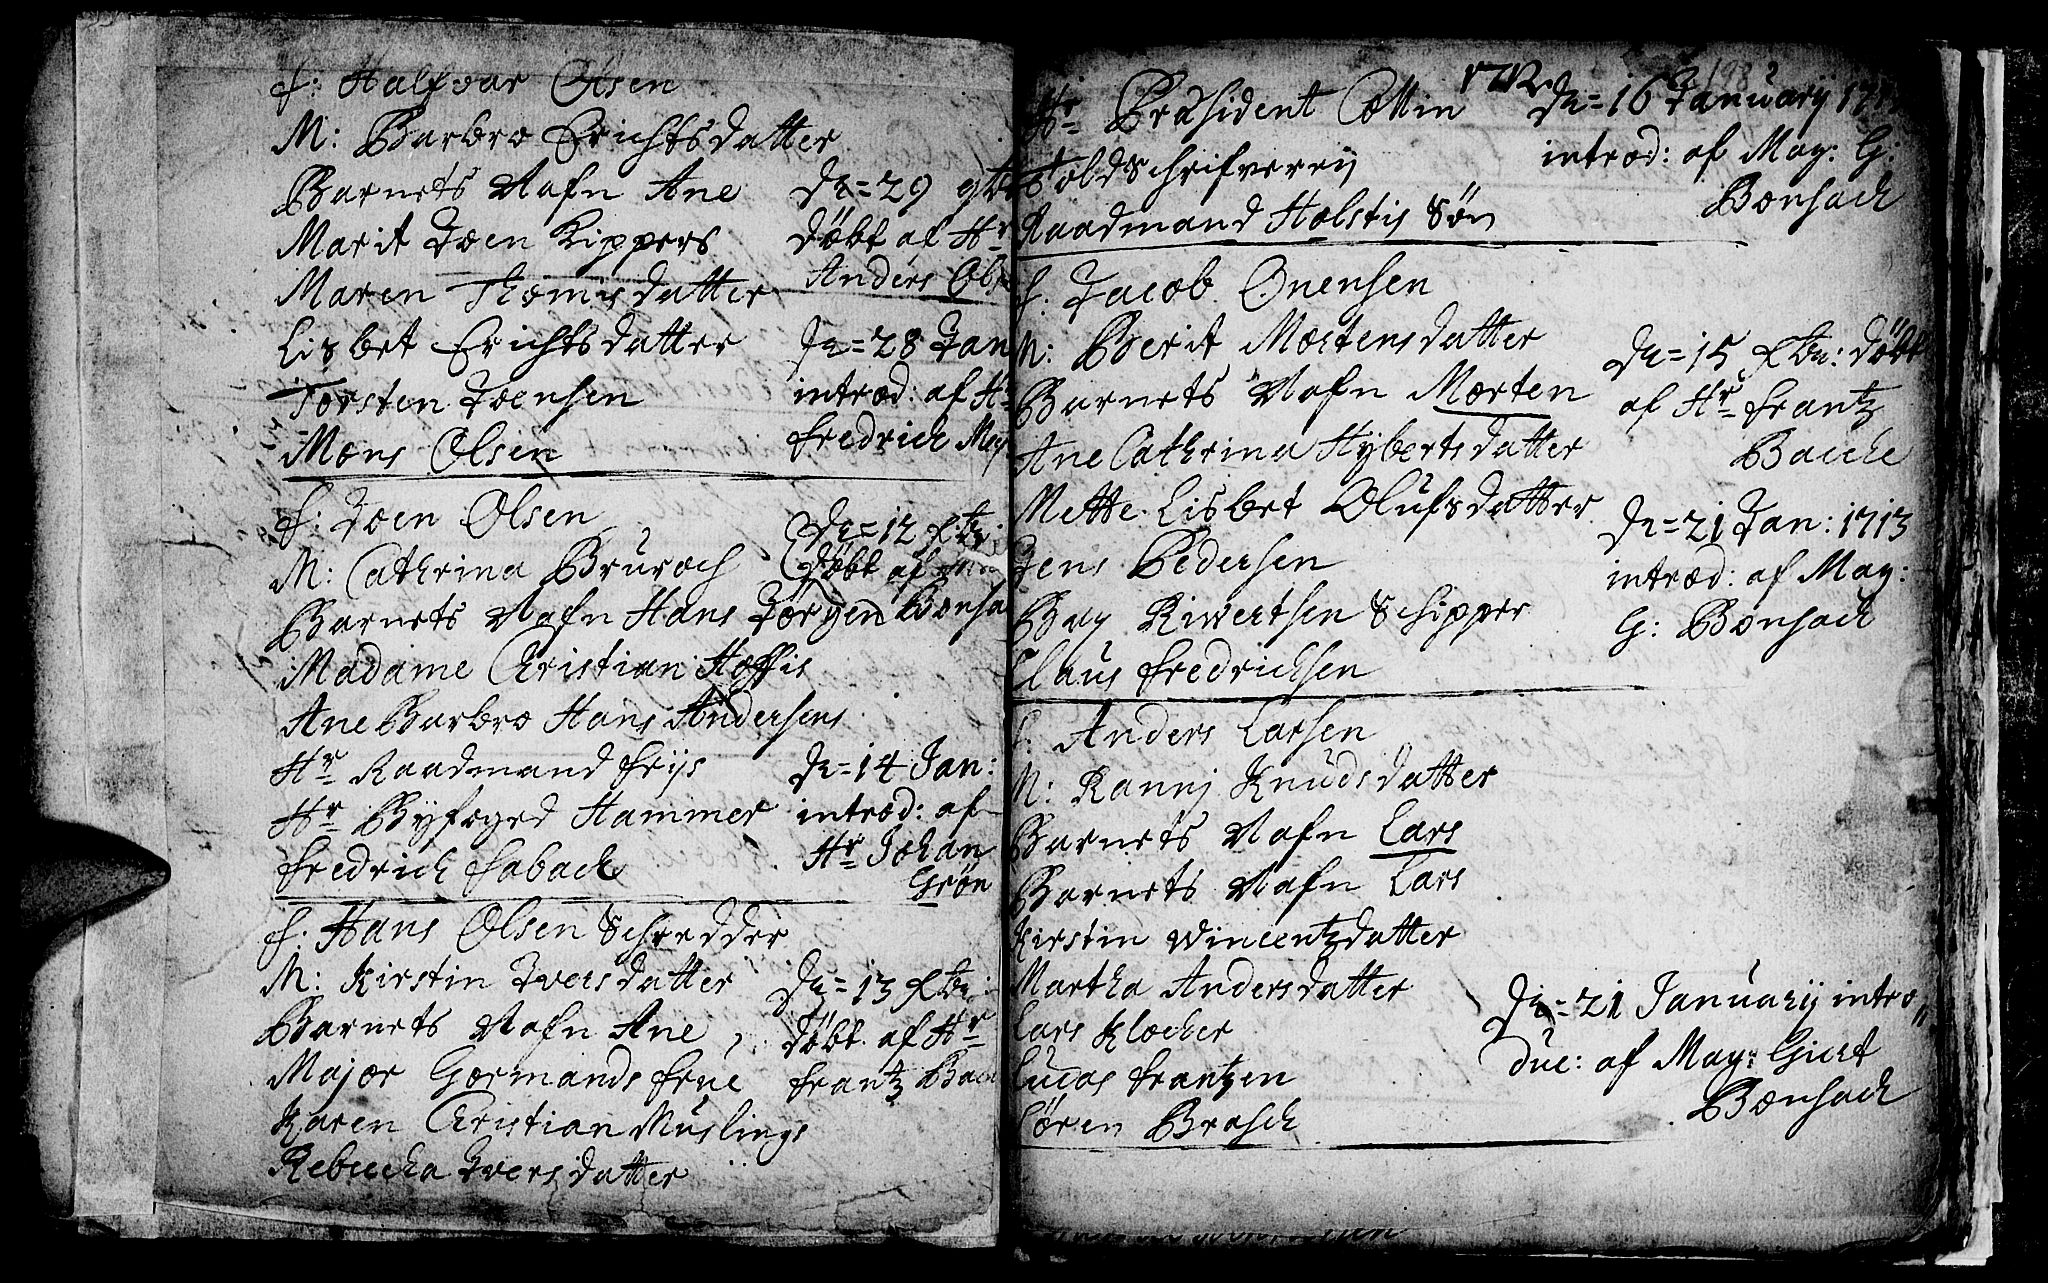 f: Halfvar Olsen
M: Barbro Erichsdatter
Barnets Nafn Ane
Marit Joen Kippers
Maren Thomisdatter
Lisbet Erichsdatter
Torsten Joensen
Mons Olsen
Dn=29
döbt af Hr
Anders
Dn=28 Jan
introd: af Hr
Fredrich May
f: Joen Olsen
M: Cathrina Bruroch
Barnets Nafn Hans Jörgen
Madame Christian Hoffis
Ane Barbro Hans Andersens
Hr Raadmand Friis
Hr Byfoged Hammer
Fredrich Faback
Dn=12 Xbr:
döbt af
Bonsa
Dn=14 Jan:
introd: af
Hr Johan
Grön
f: Hans Olsen Schredder
M: Kirstin Iversdatter
Barnets Nafn Ane
Major Gormands Frue
Karen Christian Muslings
Rebecka Iversdatter
Dn=13 Xbr:
döbt af Hr
Frantz Bac
1712
198
Hr Præsident Collin
Toldschrifverij
Raadmand Holstis Sön
Dn=16 Januarij 171
introd: af May: G:
Bonsach
f: Jacob Onensen
M: Berit Mortensdatter
Barnets Nafn Morten
Ane Cathrina Hybertsdatter
Mette Lisbet Olufsdatter
Jens Pedersen
Boy Riwertsen Schipper
Claus Fredrichsen
Dn=15 Xbr: döbt
af Hr Frantz
Bacche
Dn=21 Jan: 1713
introd: af May:
G: Bonsach
f: Anders Larsen
M: Ranni Knudsdatter
Barnets Nafn Lars
Barnets Nafn Lars
Kirstin Vincentzdatter
Martha Andersdatter
Lars Klocker
Lucas Frantzen
Sören Brasch
Dn=21 Januarij intro
duc: af May: Giert
Bonsach